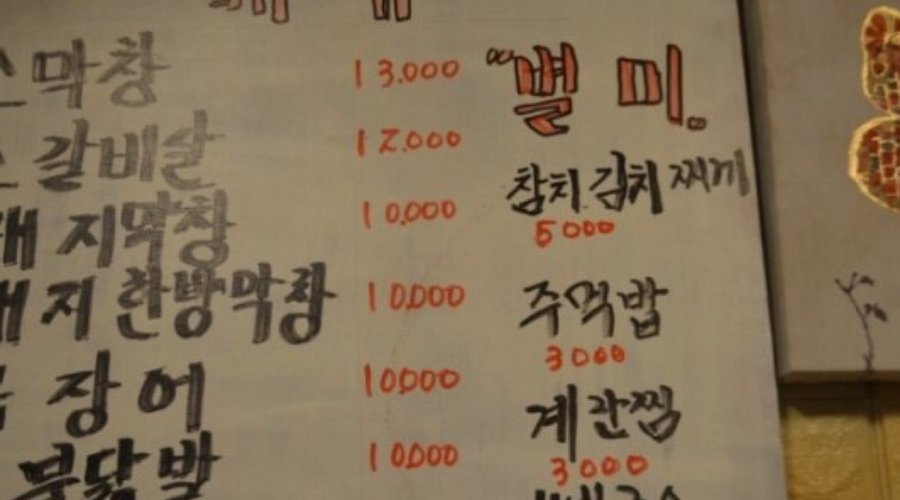 막창 13.000
갈비살 12.000
지막창 10.000
지한방막창 10.000
장어 10.000
불닭발 10.000
별미
참치 김치 찌끼
5000
주먹밥
3000
계란찜
3000